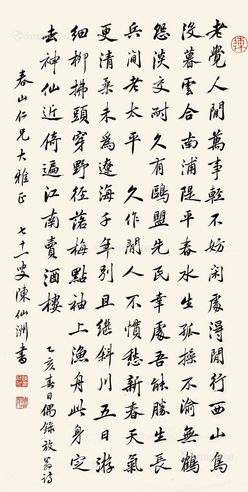 老覺人間萬事輕不妨閑處得閒行西山鳥
沒暮雲合南浦隄平春水生孤操不渝無鶴
怨淡交耐久有鷗盟先民幸處吾能勝生長
兵間老太平 久作閒人不慣愁新春天氣
更清柔未為遼海千年別且繼斜川五日游
細柳拂頭穿野徑落梅點袖上漁舟此身定
去神仙近倚遍江南賣酒樓
乙亥春日偶錄放翁詩
春山仁兄大雅正 七十一叟陳仙洲書